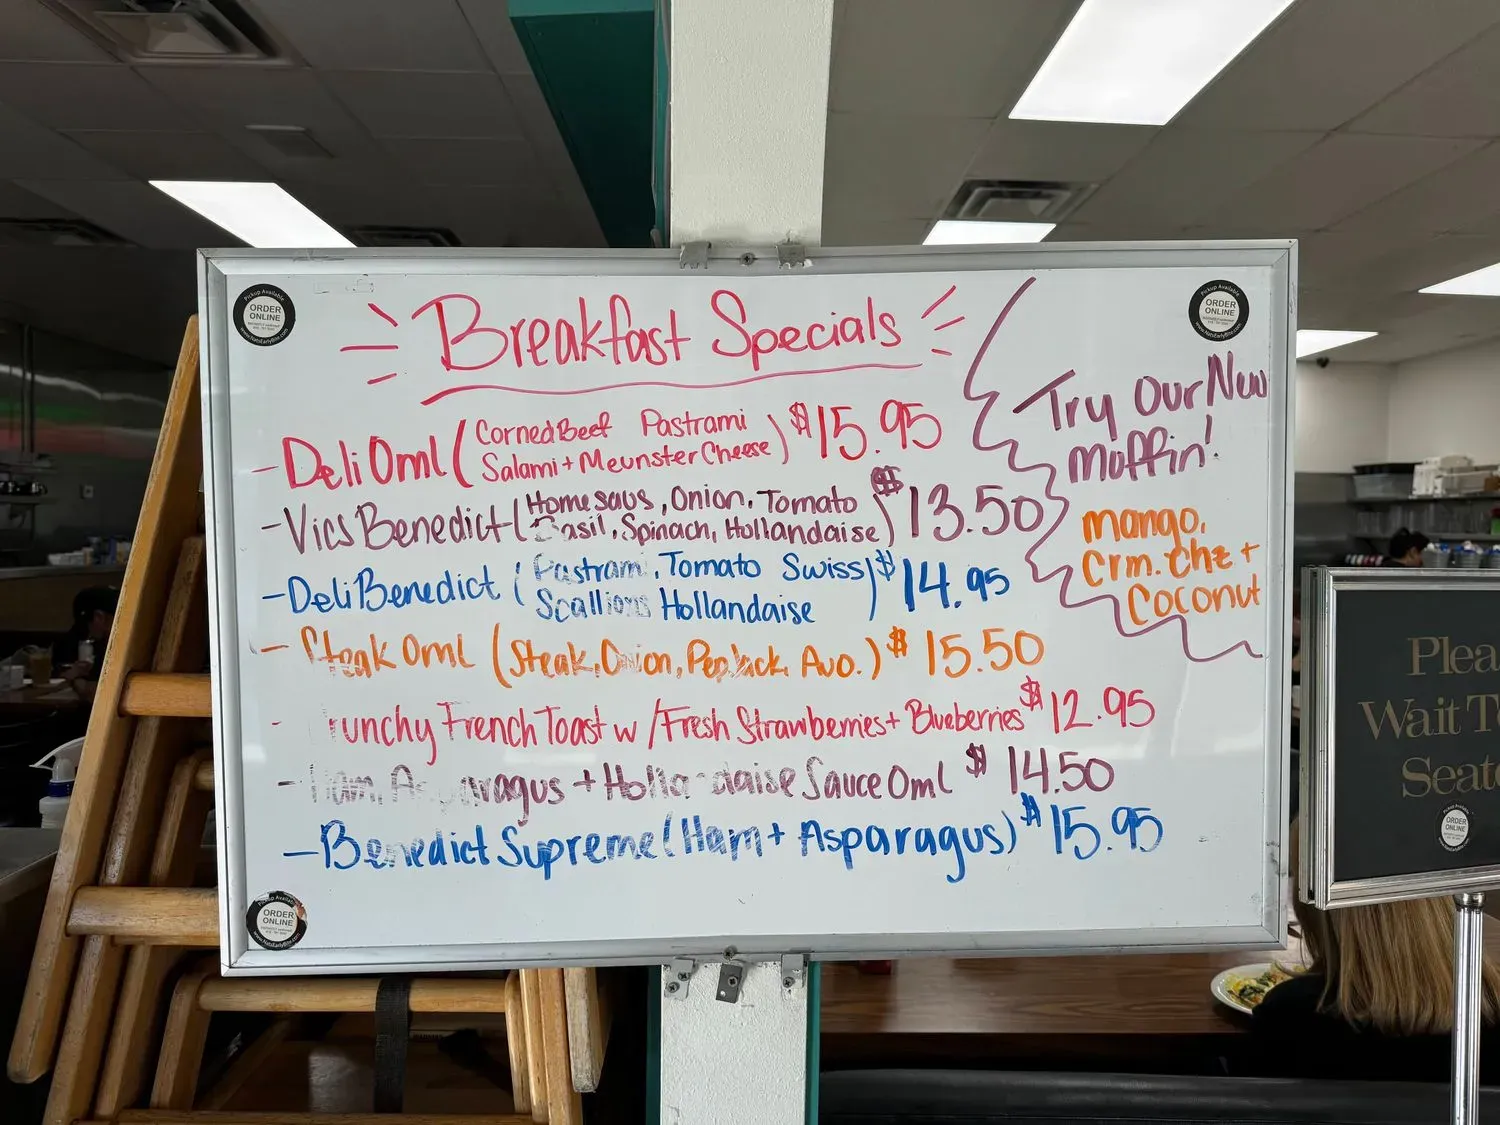 Breakfast Specials
- Deli Oml (Corned Beef Pastrami
Salami + Meunster Cheese) $15.95
- Vics Benedict (Homesaus, Onion, Tomato
Basil, Spinach, Hollandaise) $13.50
- Deli Benedict (Pastrami, Tomato Swiss
Scallions Hollandaise) $14.95
- Steak Oml (Steak, Onion, PepJack, Avo.) $15.50
- runchy French Toast w/Fresh Strawberries + Blueberries $12.95
- Ham, Asparagus + Hollandaise Sauce Oml $14.50
- Benedict Supreme (Ham + Asparagus) $15.95
Try Our New
Moffin!
mango,
crm. chz +
Coconut
Pickup Available
ORDER
ONLINE
www.NatsEarlyBite.com
Pickup Available
ORDER
ONLINE
www.NatsEarlyBite.com
Pickup Available
ORDER
ONLINE
www.NatsEarlyBite.com
Plea
Wait T
Seat
ORDER
ONLINE